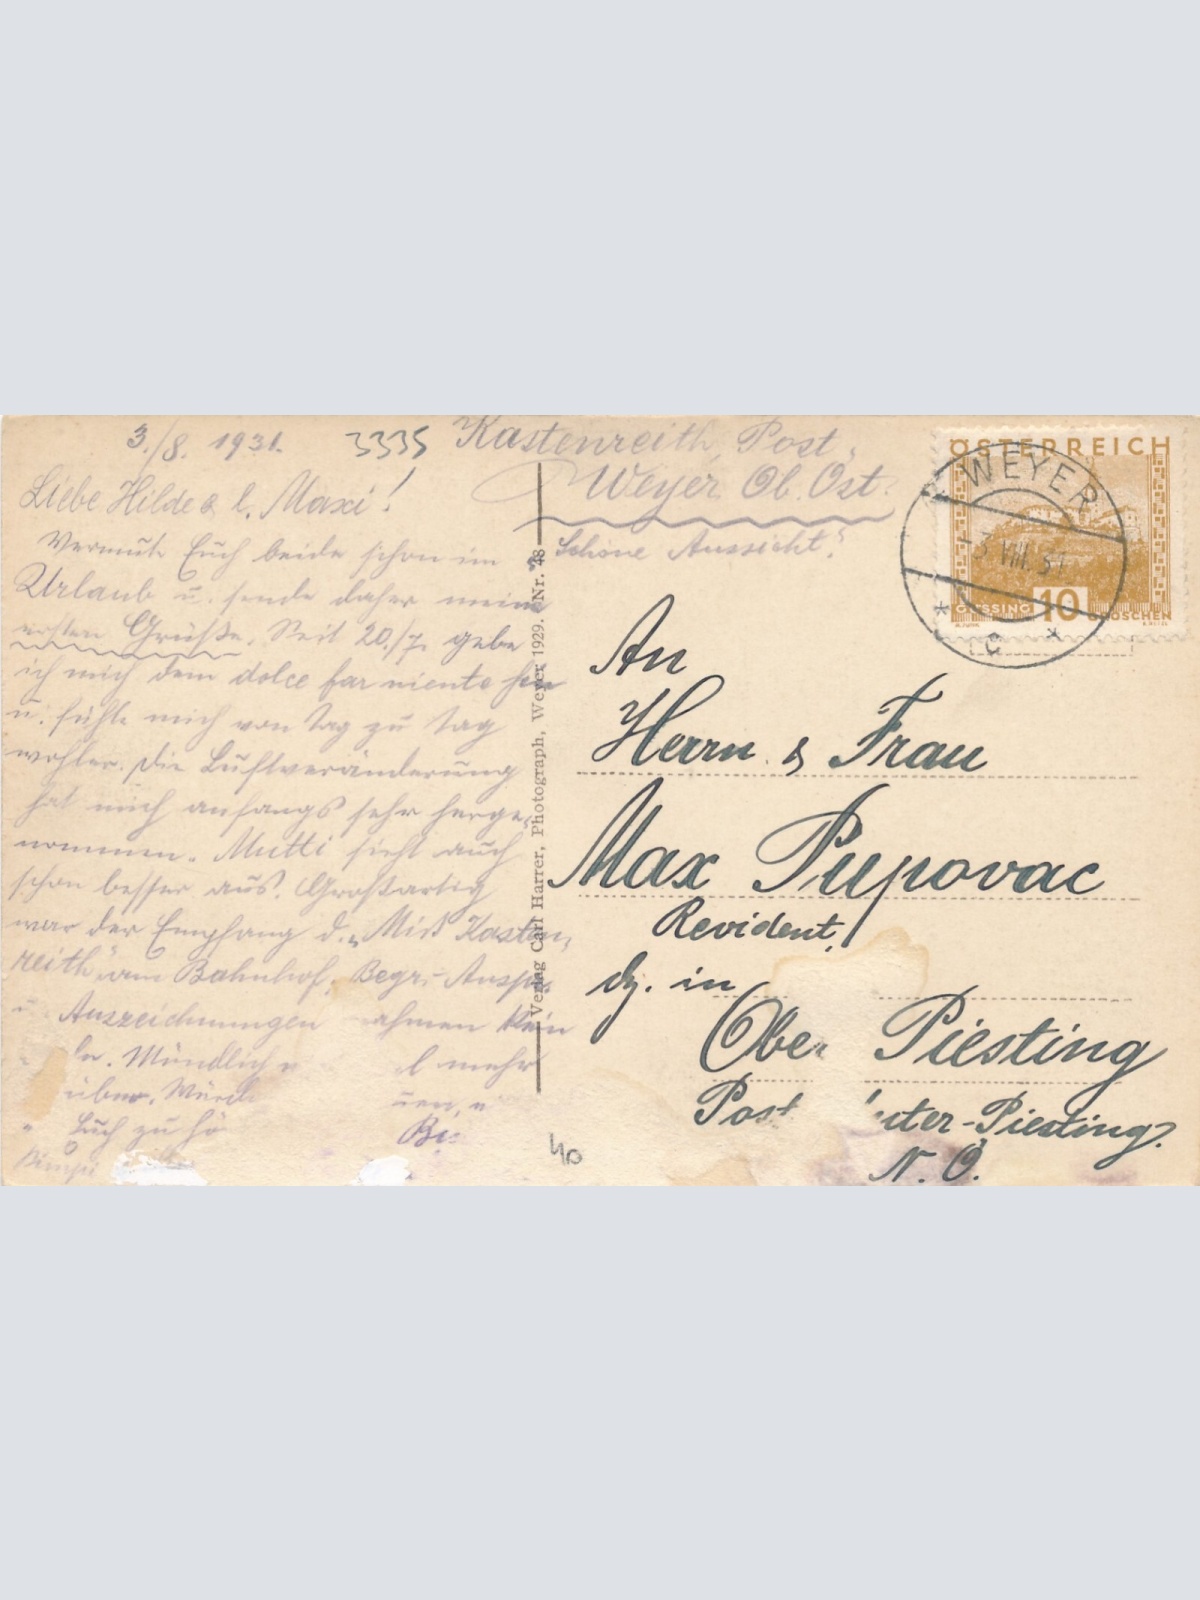 3./8. 1931.
3335
Kastenreith, Post
Weyer Ob. Öst.
"Schöne Aussicht"
Liebe Hilde & l. Maxi!
Vermute Euch beide schon im
Urlaub u. sende daher meine
ersten Grüße. Seit 20./7. gebe
ich mich dem dolce far niente hin
u. fühle mich von Tag zu Tag
wohler. Die Luftveränderung
hat mich anfangs sehr herge-
nommen. Mutti sieht auch
schon besser aus. Großartig
war der Empfang d. "Miß Kasten-
reith" am Bahnhof.
u. Auszeichnungen ahmen kein
Mündlich mehr
über.
Euch zu
Verlag Carl Harrer, Photograph, Weyer 1929. Nr. 48
ÖSTERREICH
GÜSSING 10 GROSCHEN
WEYER
-3.VIII.31
* c *
An
Herrn & Frau
Max Pupovac
Revident,
dz. in
Ober Piesting
Post Unter-Piesting
N. Ö.
40